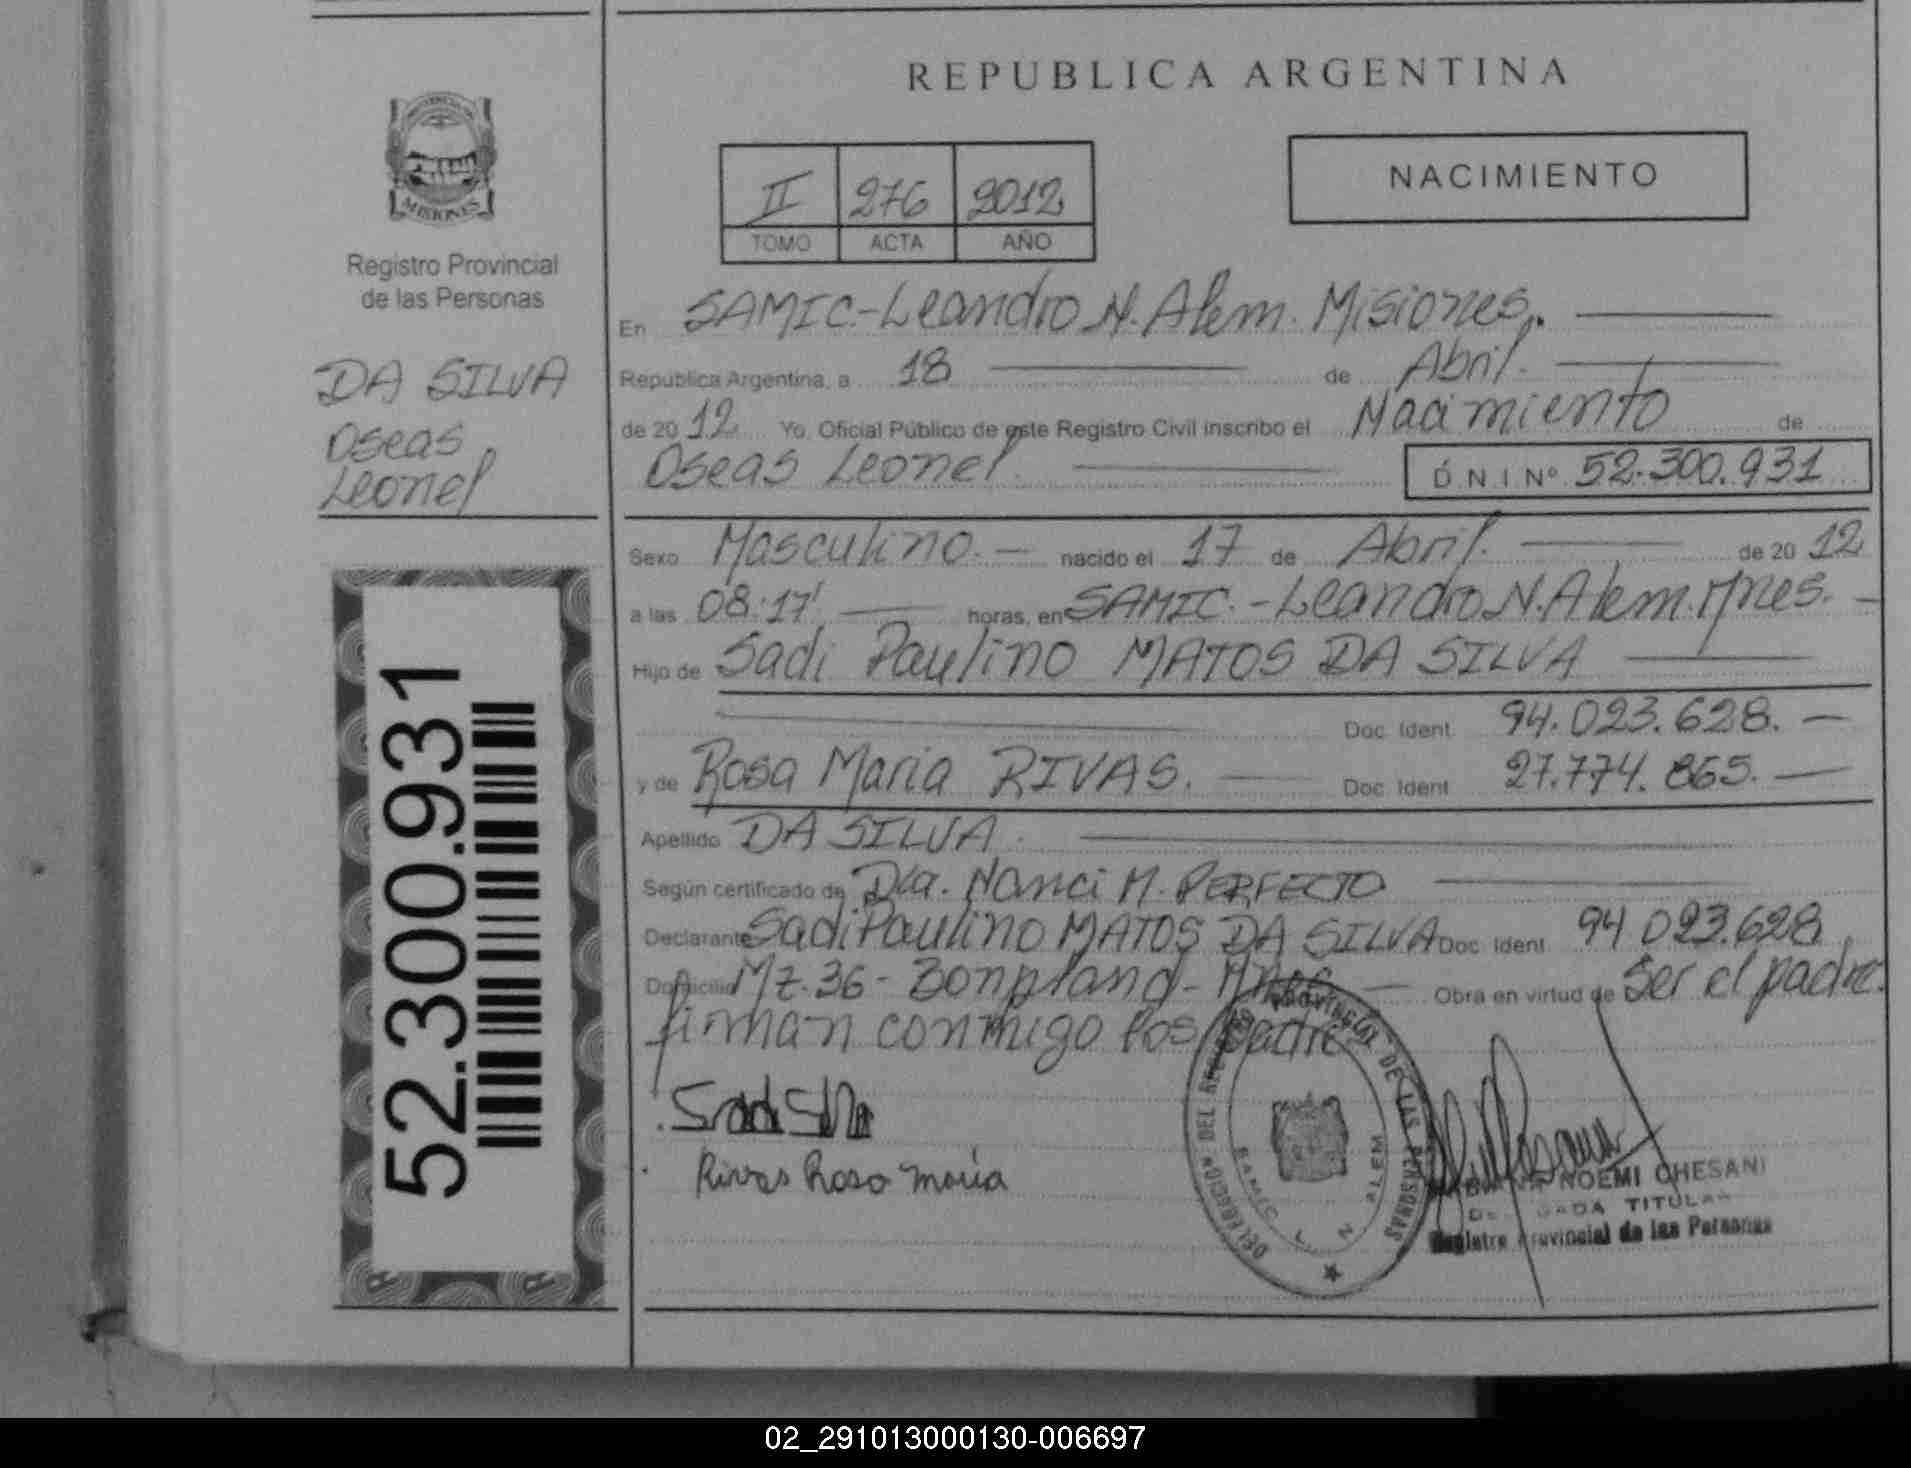 REPUBLICA ARGENTINA
NACIMIENTO
II 276 2012
TOMO ACTA AÑO
MISIONES
Registro Provincial
de las Personas
DA SILVA
Oseas
Leonel
52.300.931
En SAMIC.-Leandro N. Alem. Misiones.
República Argentina, a 18 de Abril.
de 2012 Yo, Oficial Público de este Registro Civil inscribo el Nacimiento de
Oseas Leonel. D.N.I Nº 52.300.931
Sexo Masculino.- nacido el 17 de Abril. de 2012
a las 08:17' horas, en SAMIC.-Leandro N. Alem. Mnes.
Hijo de Sadi Paulino MATOS DA SILVA
Doc. Ident. 94.023.628.-
y de Rosa Maria RIVAS. Doc. Ident. 27.774.865.-
Apellido DA SILVA.
Según certificado de Dra. Nanci M. PERFECTO
Declarante Sadi Paulino MATOS DA SILVA Doc. Ident. 94 023.628
Domicilio Mz.36-Bonpland-Mnes - Obra en virtud de Ser el padre.
firman conmigo los padres
Rivas Rosa María
DELEGACION DEL REGISTRO PROVINCIAL DE LAS PERSONAS
SAMIC L N ALEM
NOEMI CHESANI
TITULAR
Registro Provincial de las Personas
02_291013000130-006697